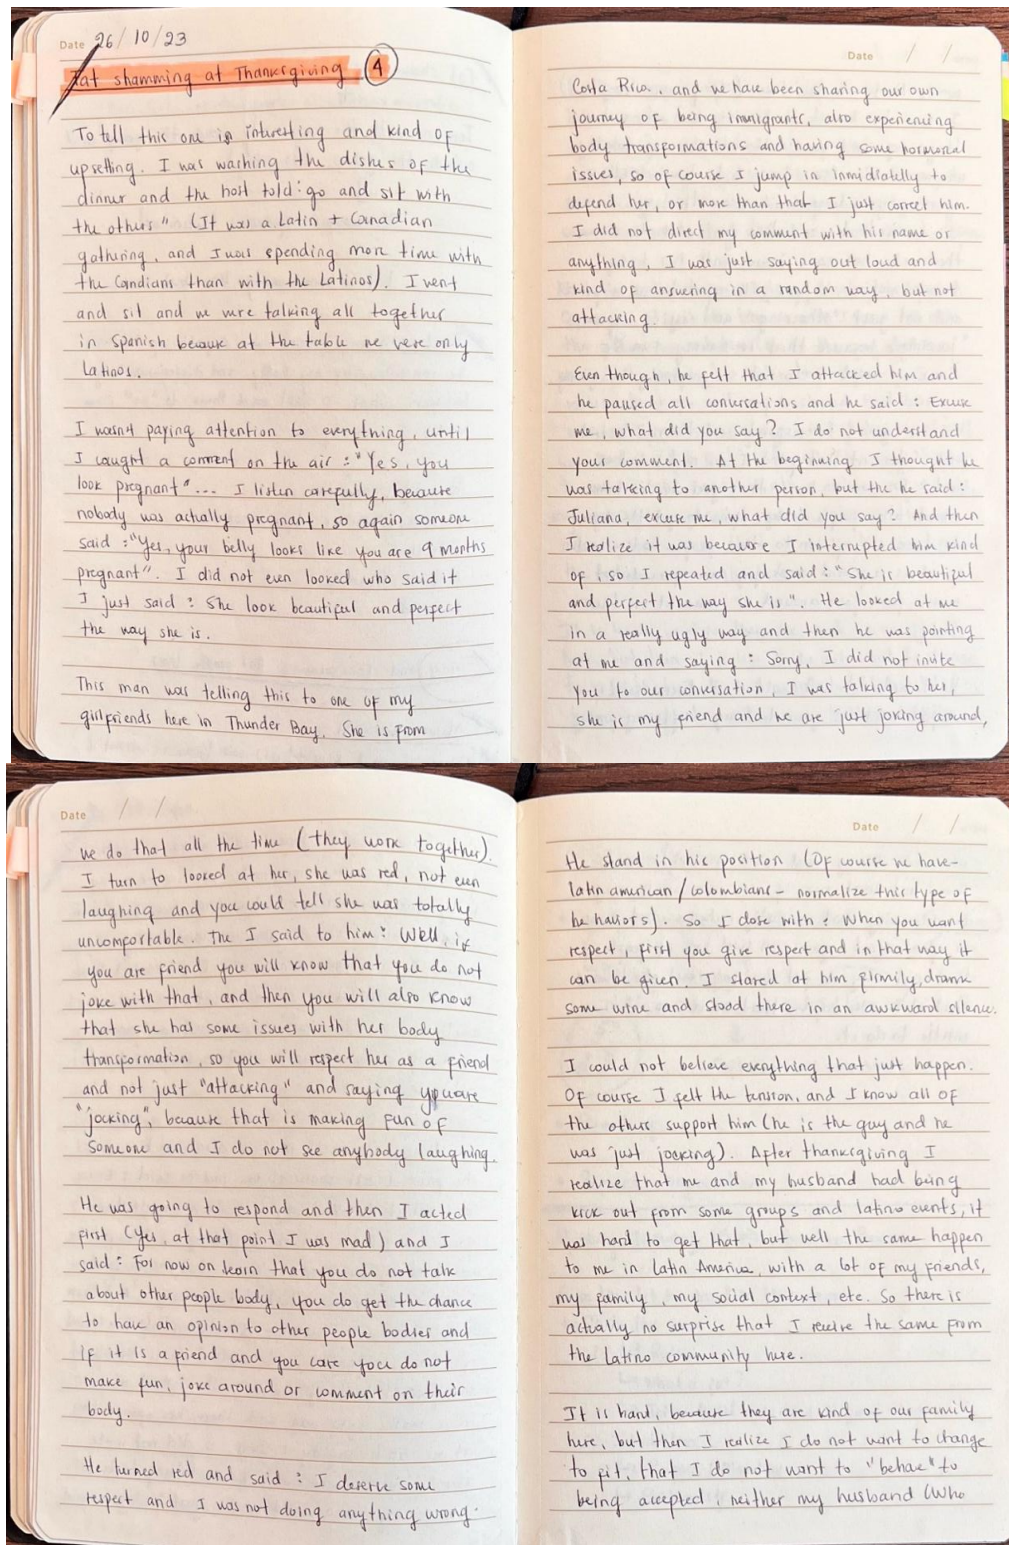 Date 26/10/23
Fat shamming at Thanksgiving 4
To tell this one is interesting and kind of
upsetting. I was washing the dishes of the
dinner and the host told: go and sit with
the others" (It was a Latin + Canadian
gathering, and I was spending more time with
the Candians than with the Latinos). I went
and sit and we were talking all together
in Spanish because at the table we were only
Latinos.
I wasn't paying attention to everything, until
I caught a comment on the air: "Yes, you
look pregnant"... I listen carefully, because
nobody was actually pregnant, so again someone
said: "Yes, your belly looks like you are 9 months
pregnant". I did not even looked who said it
I just said: She look beautiful and perfect
the way she is.
This man was telling this to one of my
girlfriends here in Thunder Bay. She is from
Date / /
Costa Rica, and we have been sharing our own
journey of being immigrants, also experiencing
body transformations and having some hormonal
issues, so of course I jump in inmidiatelly to
defend her, or more than that I just correct him.
I did not direct my comment with his name or
anything, I was just saying out loud and
kind of answering in a random way, but not
attacking.
Even though, he felt that I attacked him and
he paused all conversations and he said: Excuse
me, what did you say? I do not understand
your comment. At the beginning I thought he
was talking to another person, but the he said:
Juliana, excuse me, what did you say? And then
I realize it was because I interrupted him kind
of, so I repeated and said: "She is beautiful
and perfect the way she is". He looked at me
in a really ugly way and then he was pointing
at me and saying: Sorry, I did not invite
you to our conversation, I was talking to her,
she is my friend and we are just joking around,
Date / /
we do that all the time (they work together).
I turn to looked at her, she was red, not even
laughing and you could tell she was totally
uncomfortable. The I said to him: Well, if
you are friend you will know that you do not
joke with that, and then you will also know
that she has some issues with her body
transformation, so you will respect her as a friend
and not just "attacking" and saying you are
"jocking", because that is making fun of
someone and I do not see anybody laughing.
He was going to respond and then I acted
first (yes, at that point I was mad) and I
said: For now on learn that you do not talk
about other people body, you do get the chance
to have an opinion to other people bodies and
if it is a friend and you care you do not
make fun, joke around or comment on their
body.
He turned red and said: I deserve some
respect and I was not doing anything wrong.
Date / /
He stand in his position (Of course we have-
latin american/colombians- normalize this type of
behaviors). So I close with: When you want
respect, first you give respect and in that way it
can be given. I stared at him firmily, drank
some wine and stood there in an awkward silence.
I could not believe everything that just happen.
Of course I felt the tension, and I know all of
the others support him (he is the guy and he
was just jocking). After thanksgiving I
realize that me and my husband had being
kick out from some groups and latino events, it
was hard to get that, but well the same happen
to me in Latin America, with a lot of my friends,
my family, my social context, etc. So there is
actually no surprise that I receive the same from
the Latino community here.
It is hard, because they are kind of our family
here, but then I realize I do not want to change
to fit, that I do not want to "behave" to
being accepted, neither my husband (Who